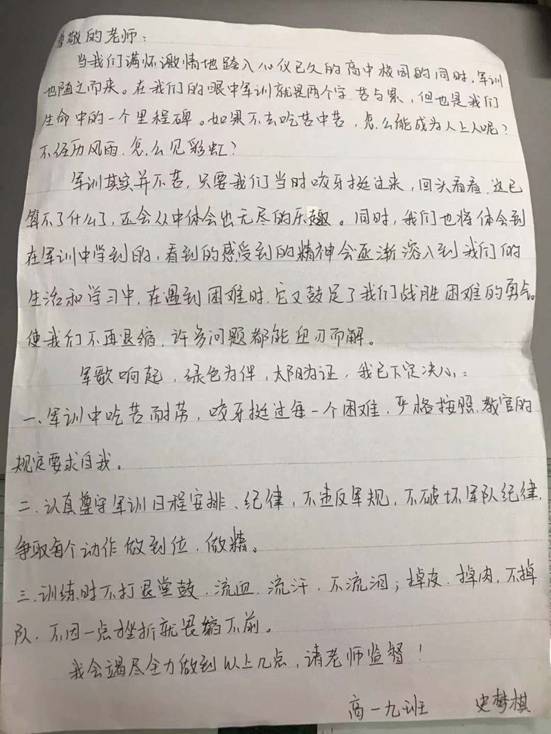 尊敬的老师:
当我们满怀激情地踏入心仪已久的高中校园的同时,军训
也随之而来。在我们的眼中军训就是两个字,苦与累,但也是我们
生命中的一个里程碑。如果不去吃苦中苦,怎么能成为人上人呢?
不经历风雨,怎么见彩虹?
军训其实并不苦,只要我们当时咬牙挺过来,回头看看,这已
算不了什么了,还会从中体会出无尽的乐趣。同时,我们也将体会到
在军训中学到的,看到的感受到的精神会逐渐溶入到我们的
生活和学习中,在遇到困难时,它又鼓足了我们战胜困难的勇气。
使我们不再退缩,许多问题都能迎刃而解。
军歌响起,绿色为伴,太阳为证,我已下定决心:
一、军训中吃苦耐劳,咬牙挺过每一个困难,严格按照教官的
规定要求自我。
二、认真遵守军训日程安排、纪律,不违反军规,不破坏军队纪律,
争取每个动作做到位,做精。
三、训练时不打退堂鼓,流血、流汗,不流泪;掉皮、掉肉,不掉
队,不因一点挫折就畏缩不前。
我会竭尽全力做到以上几点,请老师监督!
高一九班 史梦棋